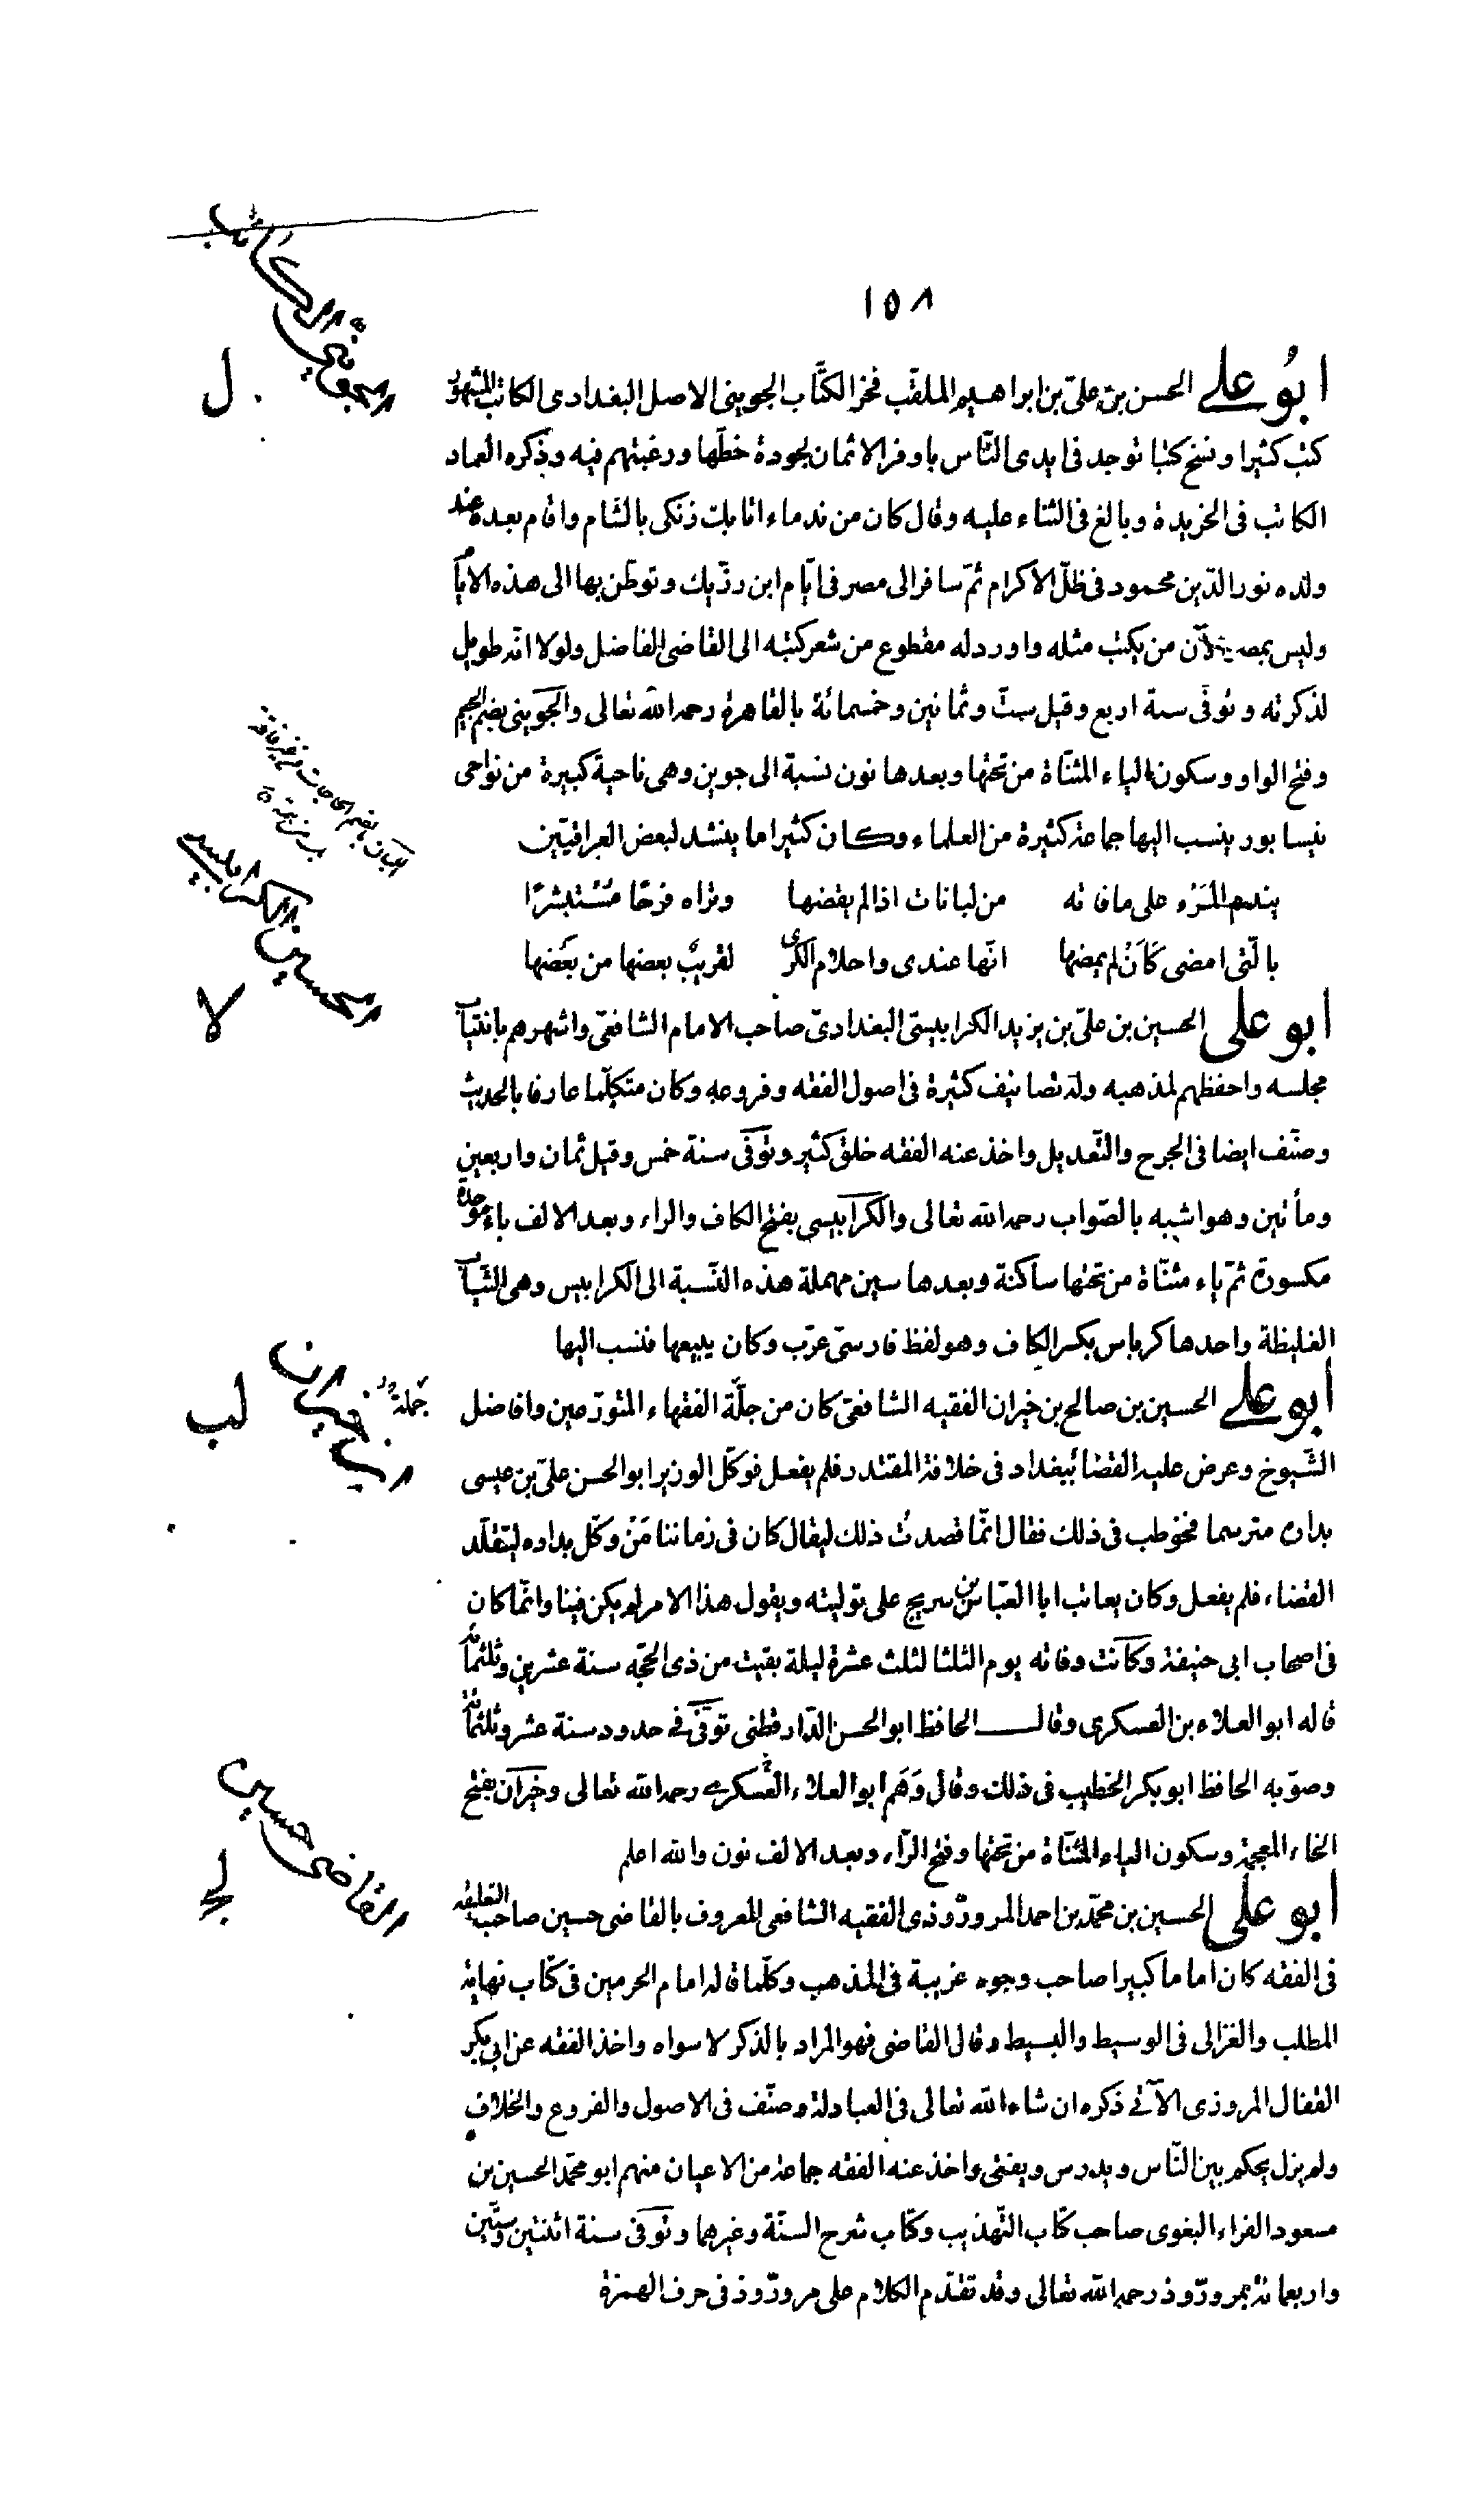 ١٥٨
الجوينى الكاتب
ل
ابُو على الحسن بن على بن ابراهيم الملقّب فخر الكتّاب الجوينى الاصل البغدادى الكاتب المشهور
كتب كثيرا ونسخ كتبا توجد فى ايدى النّاس باوفر الاثمان لجودة خطّها ورغبتهم فيه وذكره العماد
الكاتب فى الخريدة وبالغ فى الثناء عليه وقال كان من ندماء اتابك زنكى بالشام واقام بعده عند
ولده نور الدّين محمود فى ظلّ الاكرام ثمّ سافر الى مصر فى ايّام ابن رزّيك وتوطّن بها الى هذه الايّام
وليس بمصر الآن من يكتب مثله واورد له مقطوع من شعر كتبه الى القاضى الفاضل ولولا انّه طويل
لذكرته وتوفّى سنة اربع وقيل ستّ وثمانين وخمسمائة بالقاهرة رحمه الله تعالى والجوينى بضم الجيم
وفتح الواو وسكون الياء المثنّاة من تحتها وبعدها نون نسبة الى جوين وهى ناحية كبيرة من نواحى
نيسابور ينسب اليها جماعة كثيرة من العلماء وكان كثيرا ما ينشد لبعض العراقيّين
يندم المَرْء على ما فاته من لبانات اذا لم يقضها وتراه فرحًا مُسْتبشرًا
بالّتى امضى كَاَنْ لم يمضها انّها عندى واحلام الكرى لقريبٌ بعضها من بَعْضها
الحسين الكرابيسى
لا
ابو على الحسين بن علىّ بن يزيد الكرابيسىّ البغدادىّ صاحب الامام الشافعىّ واشهرهم بانتياب
مجلسه واحفظهم لمذهبه وله تصانيف كثيرة فى اصول الفقه وفروعه وكان متكلّما عارفا بالحديث
وصنّف ايضا فى الجرح والتّعديل واخذ عنه الفقه خلق كثير وتوفّى سنة خمس وقيل ثمان واربعين
ومأتين وهو اشبه بالصّواب رحمه الله تعالى والكرابيسى بفتح الكاف والراء وبعد الالف باء موحدة
مكسورة ثمّ ياء مثنّاة من تحتها ساكنة وبعدها سين مهملة هذه النّسبة الى الكرابيس وهى الثّياب
الغليظة واحدها كرباس بكسر الكاف وهو لفظ فارسىّ عرّب وكان يبيعها فنسب اليها
ابن خيران
لب
ابو على الحسين بن صالح بن خيران الفقيه الشافعىّ كان من جلّة الفقهاء المتورّعين وافاضل
الشّيوخ وعرض عليه القضا ببغداد فى خلافة المقتدر فلم يفعل فوكّل الوزير ابو الحسن علىّ بن عيسى
بداره مترسما فخوطب فى ذلك فقال انّما قصدتُ ذلك ليقال كان فى زماننا مَنْ وكّل بداره ليتقلّد
القضاء فلم يفعل وكان يعاتب ابا العبّاس بن سريج على توليته ويقول هذا الامر لم يكن فينا وانّما كان
فى اصحاب ابى حنيفة وكانت وفاته يوم الثلثا لثلث عشرة ليلة بقيت من ذى الحجّه سنة عشرين وثلثمائة
قاله ابو العلاء بن العسكرى وقال الحافظ ابو الحسن الدّارقطنى توفّى فى حدود سنة عشر وثلثمائة
وصوّبه الحافظ ابو بكر الخطيب فى ذلك وقال وَهَم ابو العلاء العسكرى رحمه الله تعالى وخيران بفتح
الخاء المعجمة وسكون الياء المثنّاة من تحتها وفتح الرّاء وبعد الالف نون والله اعلم
القاضى حسين
لج
ابو على الحسين بن محمّد بن احمد المرورّوذى الفقيه الشافعى المعروف بالقاضى حسين صاحب التعليقه
فى الفقه كان اماما كبيرا صاحب وجوه غريبة فى المذهب وكلّما قال امام الحرمين فى كتاب نهاية
المطلب والغزالى فى الوسيط والبسيط وقال القاضى فهو المراد بالذكر لا سواه واخذ الفقه عن ابى بكر
القفال المروذى الآتى ذكره ان شاء الله تعالى فى العبادلة وصنّف فى الاصول والفروع والخلاف
ولم يزل يحكم بين النّاس ويدرس ويفتى واخذ عنه الفقه جماعة من الاعيان منهم ابو محمّد الحسين بن
مسعود الفراء البغوى صاحب كتاب التّهذيب وكتاب شرح السنّة وغيرهما وتوفّى سنة اثنتين وستّين
واربعمائة بمرورّوذ رحمه الله تعالى وقد تقدّم الكلام على مرورّوذ فى حرف الهمزة